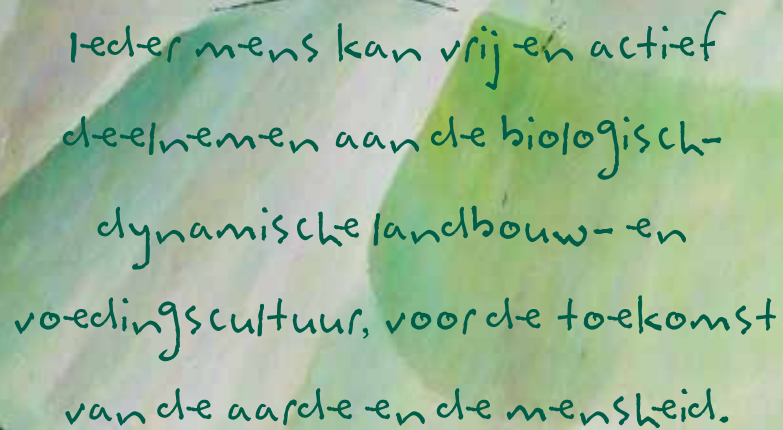 Ieder mens kan vrij en actief
deelnemen aan de biologisch-
dynamische landbouw- en
voedingscultuur, voor de toekomst
van de aarde en de mensheid.